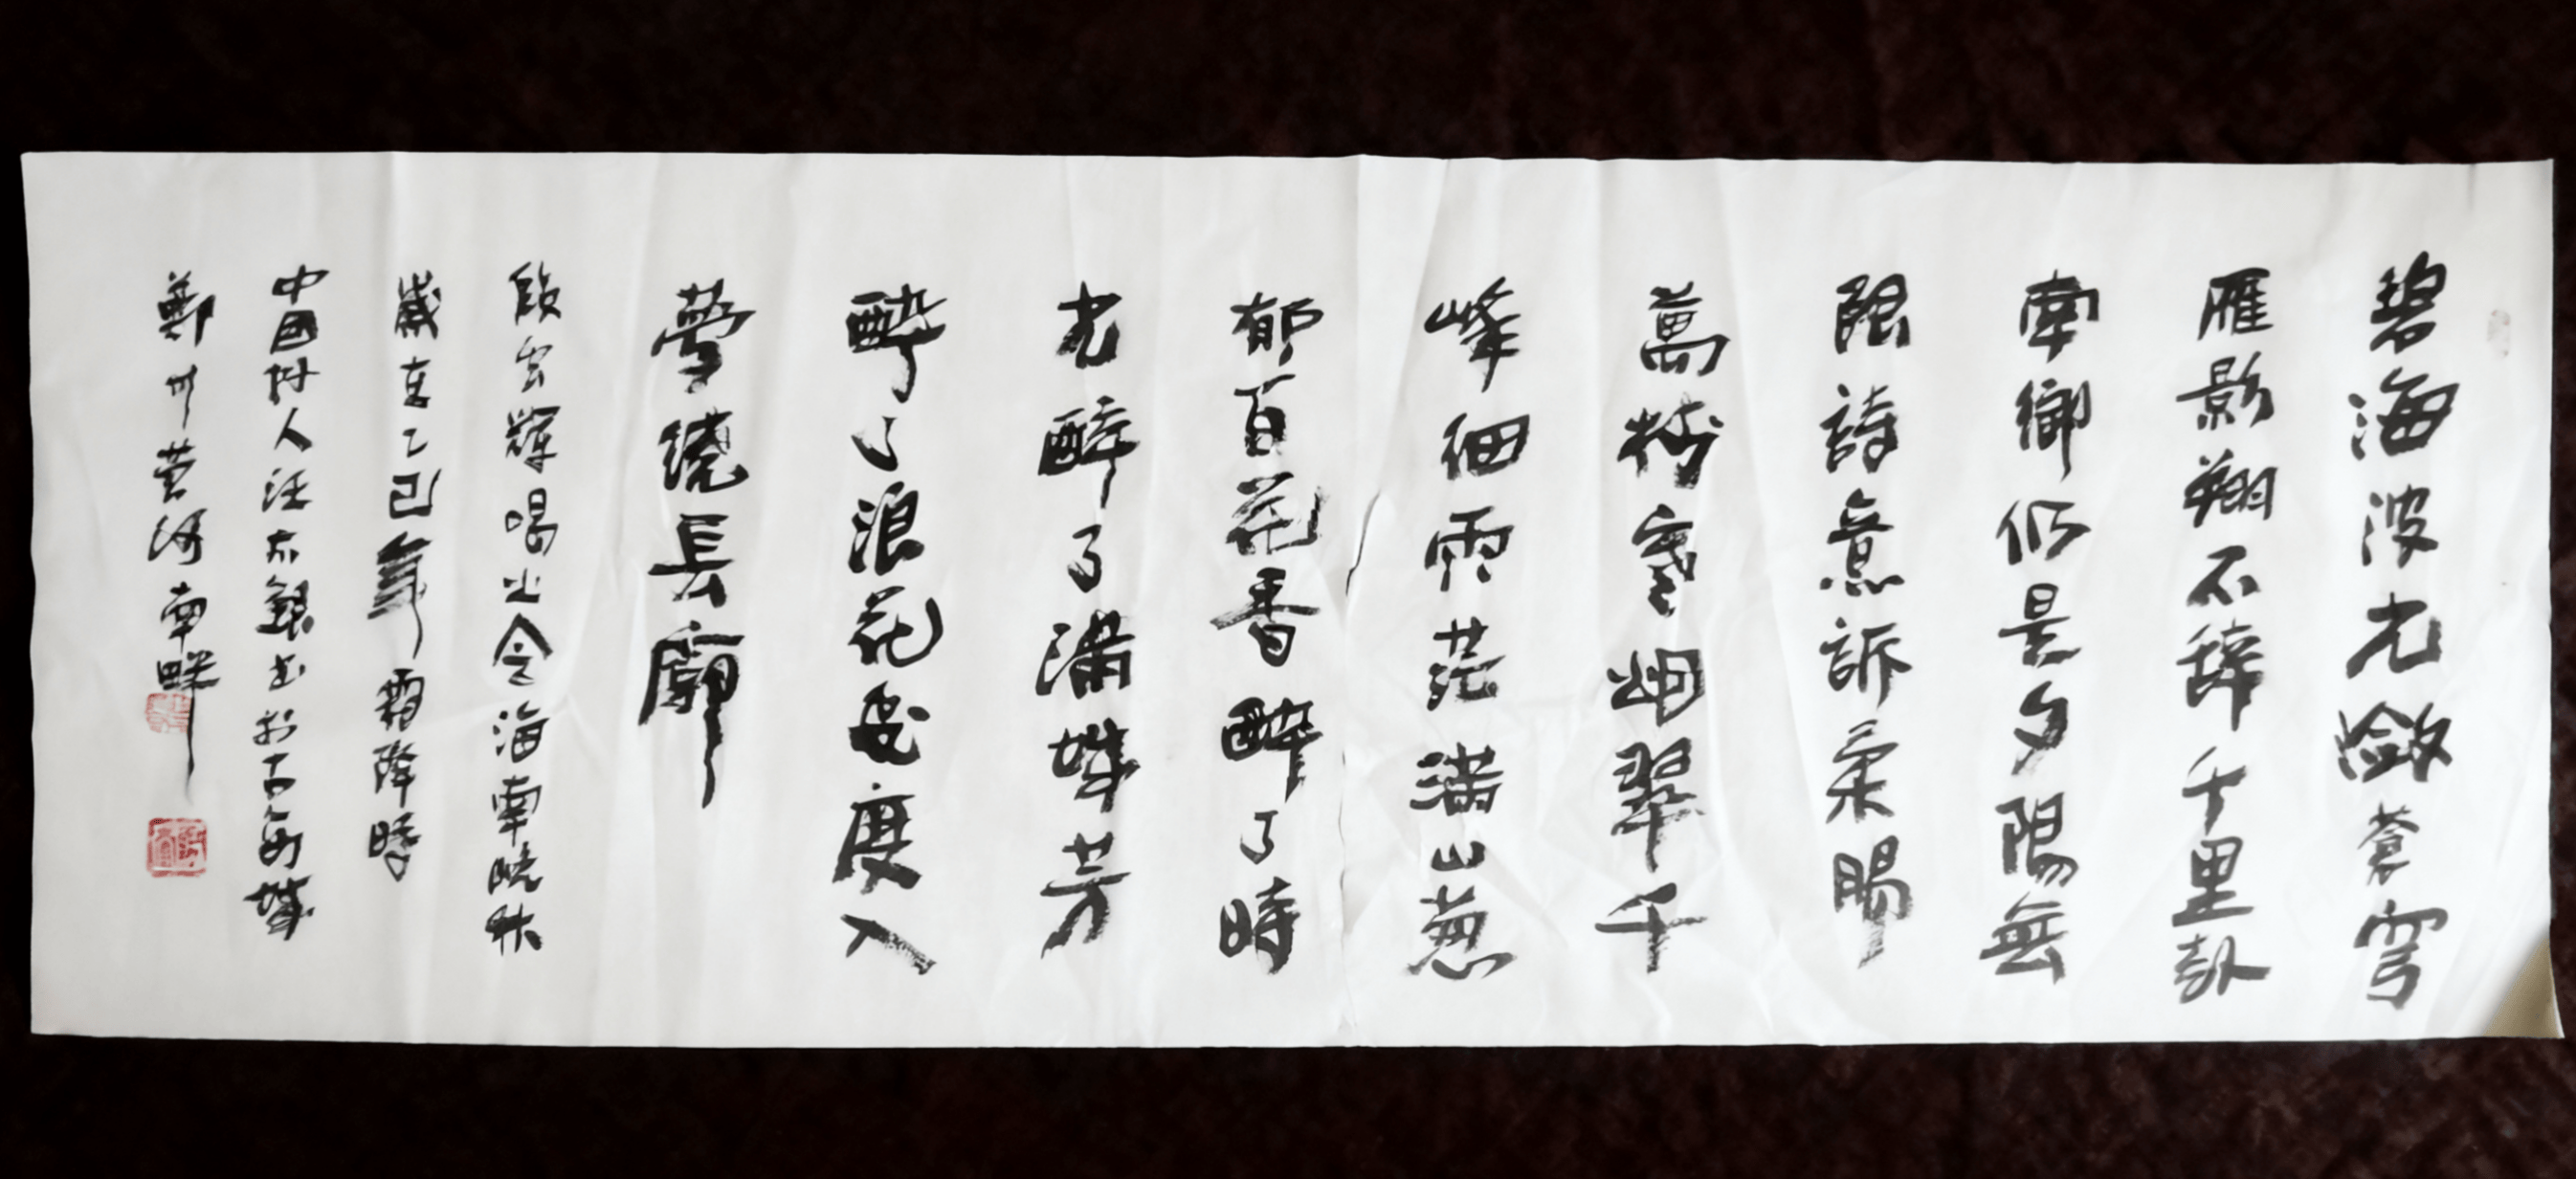 碧海波光斂蒼穹
雁影翔不辞千里卧
南鄉仍是夕陽無
限詩意訴柔腸
萬樹寒烟翠千
峰細雨茫滿山葱
郁百花香醉了時
光醉了滿城芳
醉了浪花幾度入
夢繞長廊
段雲輝喝火令海南晚秋
歲在乙巳年霜降時
中國村人汪太銀書於古商城
鄭州黄河南畔